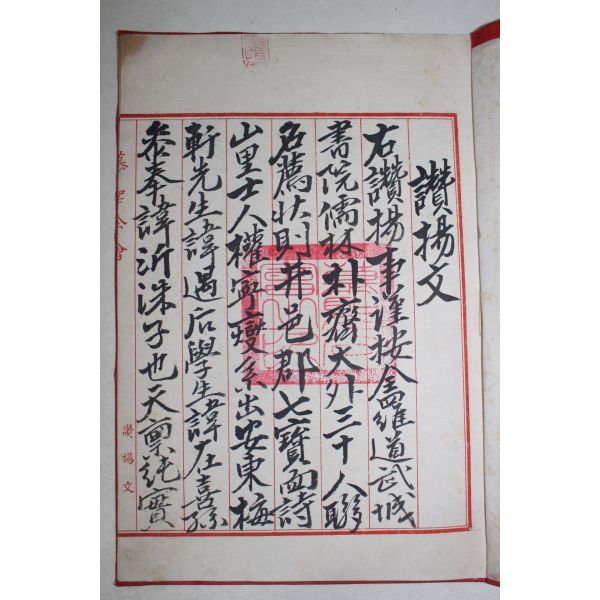 讚揚文
右讚揚事謹按全羅道武城
書院儒林朴齊大外三十人聯
名薦狀則井邑郡七寶面詩
山里士人權寧燮系出安東梅
軒先生諱遇后學生諱在喜孫
參奉諱沂洙子也天禀純實
讚揚文